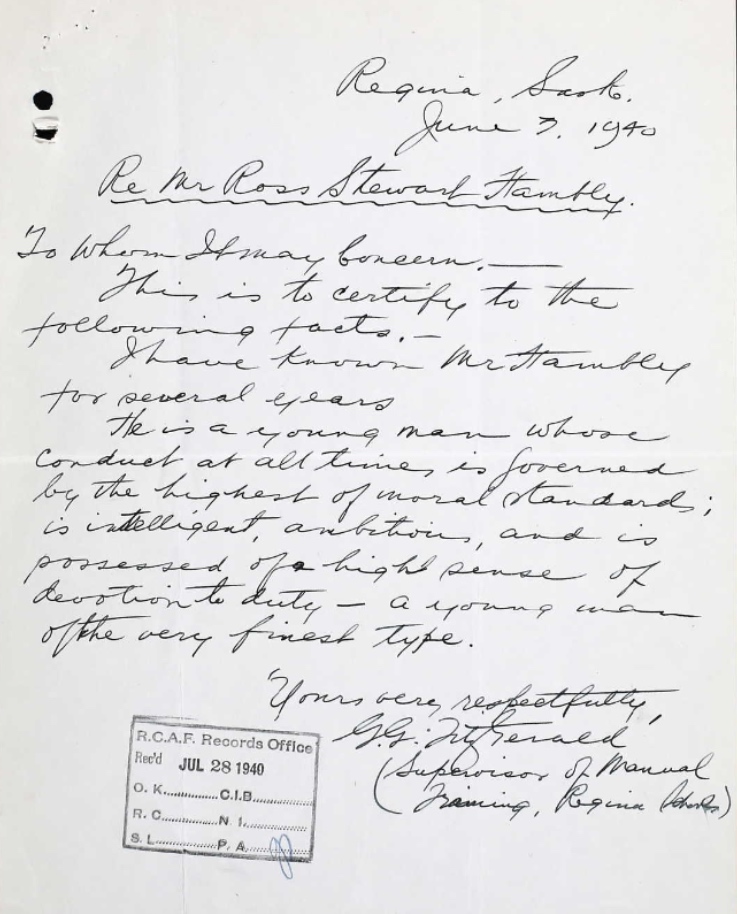 Regina, Sask.
June 7, 1940
Re Mr Ross Stewart Hambly.
To Whom It may Concern. —
This is to certify to the
following facts. —
I have known Mr Hambly
for several years
He is a young man whose
conduct at all times is governed
by the highest of moral standards;
is intelligent, ambitious, and is
possessed of a high sense of
devotion to duty — a young man
of the very finest type.
Yours very respectfully,
G.G. Fitzgerald
(Supervisor of Manual
Training, Regina Schools)
R.C.A.F. Records Office
Rec'd JUL 28 1940
O. K.............C.I.B.............
R. C.............N. I.............
S. L.............P. A.............